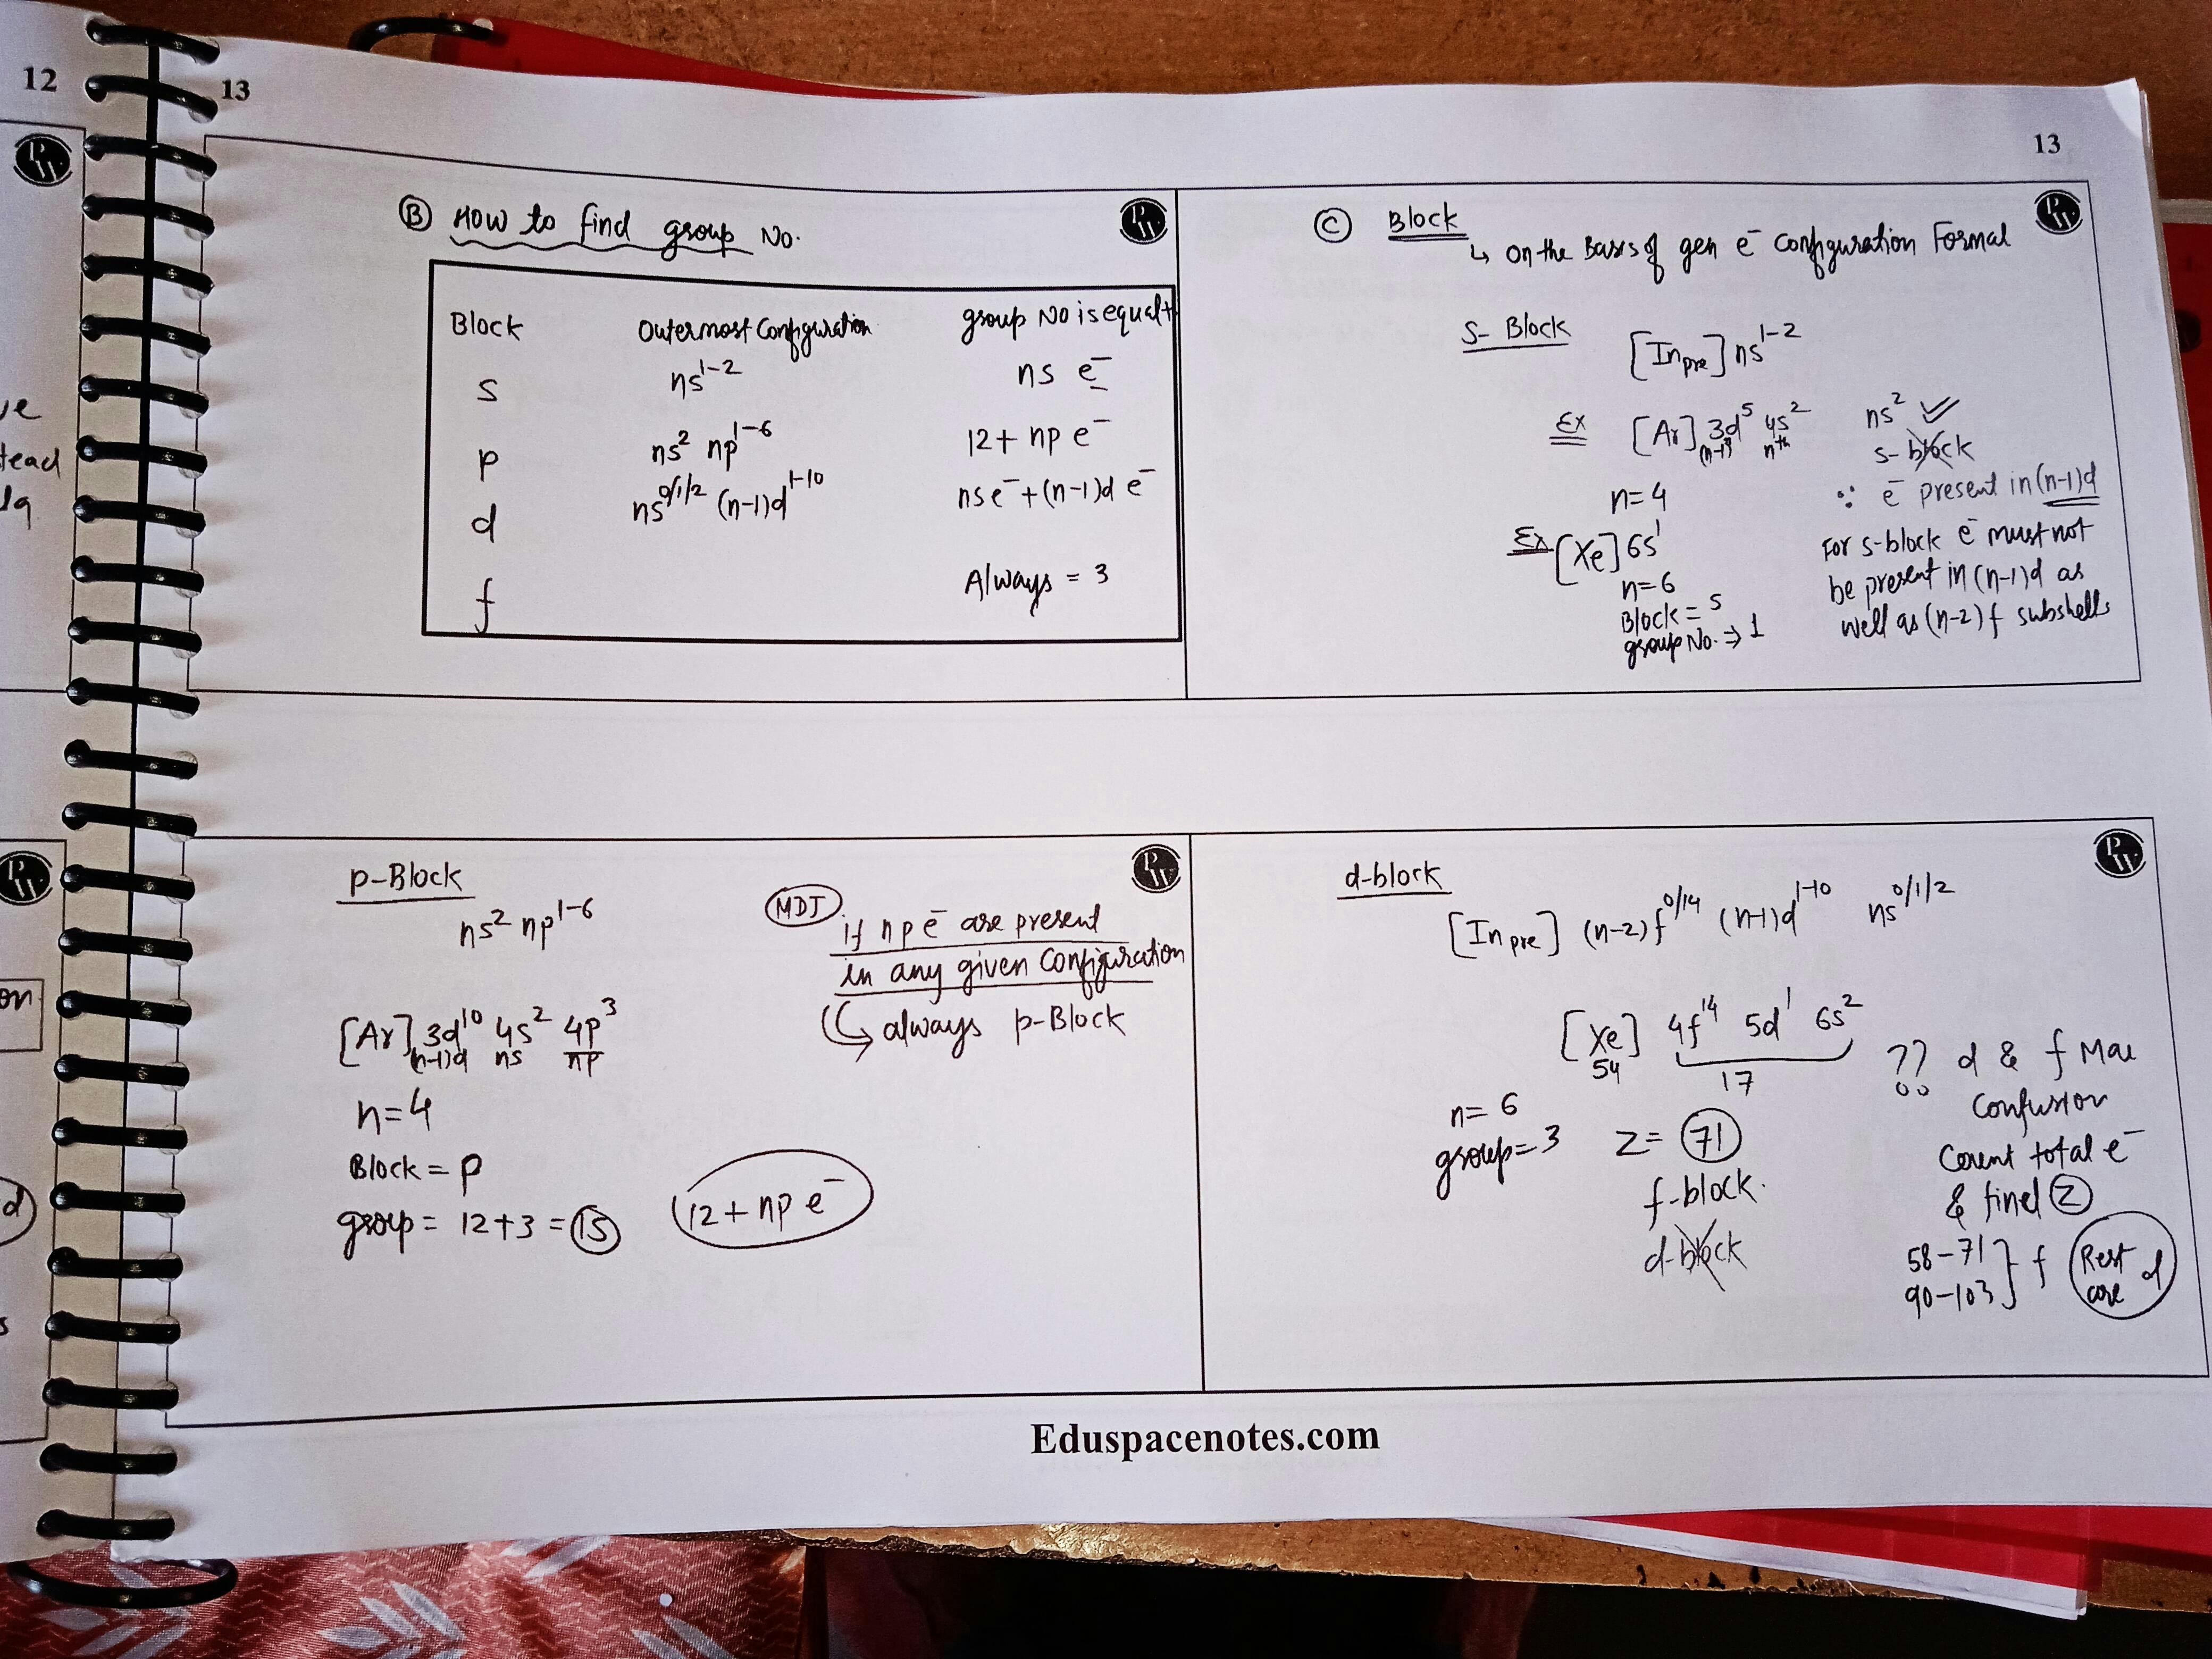 12
13
13
ve
tead
on
d
s
Ⓑ How to find group No.
Block Outermost Configuration group No is equal t
s ns¹⁻² ns e⁻
p ns² np¹⁻⁶ 12 + np e⁻
d ns⁰/¹/² (n-1)d¹⁻¹⁰ ns e⁻ + (n-1)d e⁻
f Always = 3
Ⓒ Block
↳ on the Basis of gen e⁻ Configuration Formal
S- Block [In pre] ns¹⁻²
Ex [Ar] 3d⁵ 4s²
(n-1) nth
n=4
Ex [Xe] 6s¹
n=6
Block = s
group No. ⇒ 1
ns² ✓
s-block
∵ e⁻ present in (n-1)d
For s-block e⁻ must not
be present in (n-1)d as
well as (n-2)f subshells
p-Block
ns² np¹⁻⁶
[Ar] 3d¹⁰ 4s² 4p³
(n-1)d ns np
n=4
Block = p
group = 12+3 = 15
12 + np e⁻
MDJ
if np e⁻ are present
in any given Configuration
↳ always p-Block
d-block
[In pre] (n-2)f⁰/¹⁴ (n-1)d¹⁻¹⁰ ns⁰/¹/²
[Xe] 4f¹⁴ 5d¹ 6s²
54 17
n= 6
group=3
Z= 71
f-block.
d-block
?? d & f Mai
Confusion
Count total e⁻
& find Z
58-71
90-103 } f
Rest
are d
Eduspacenotes.com